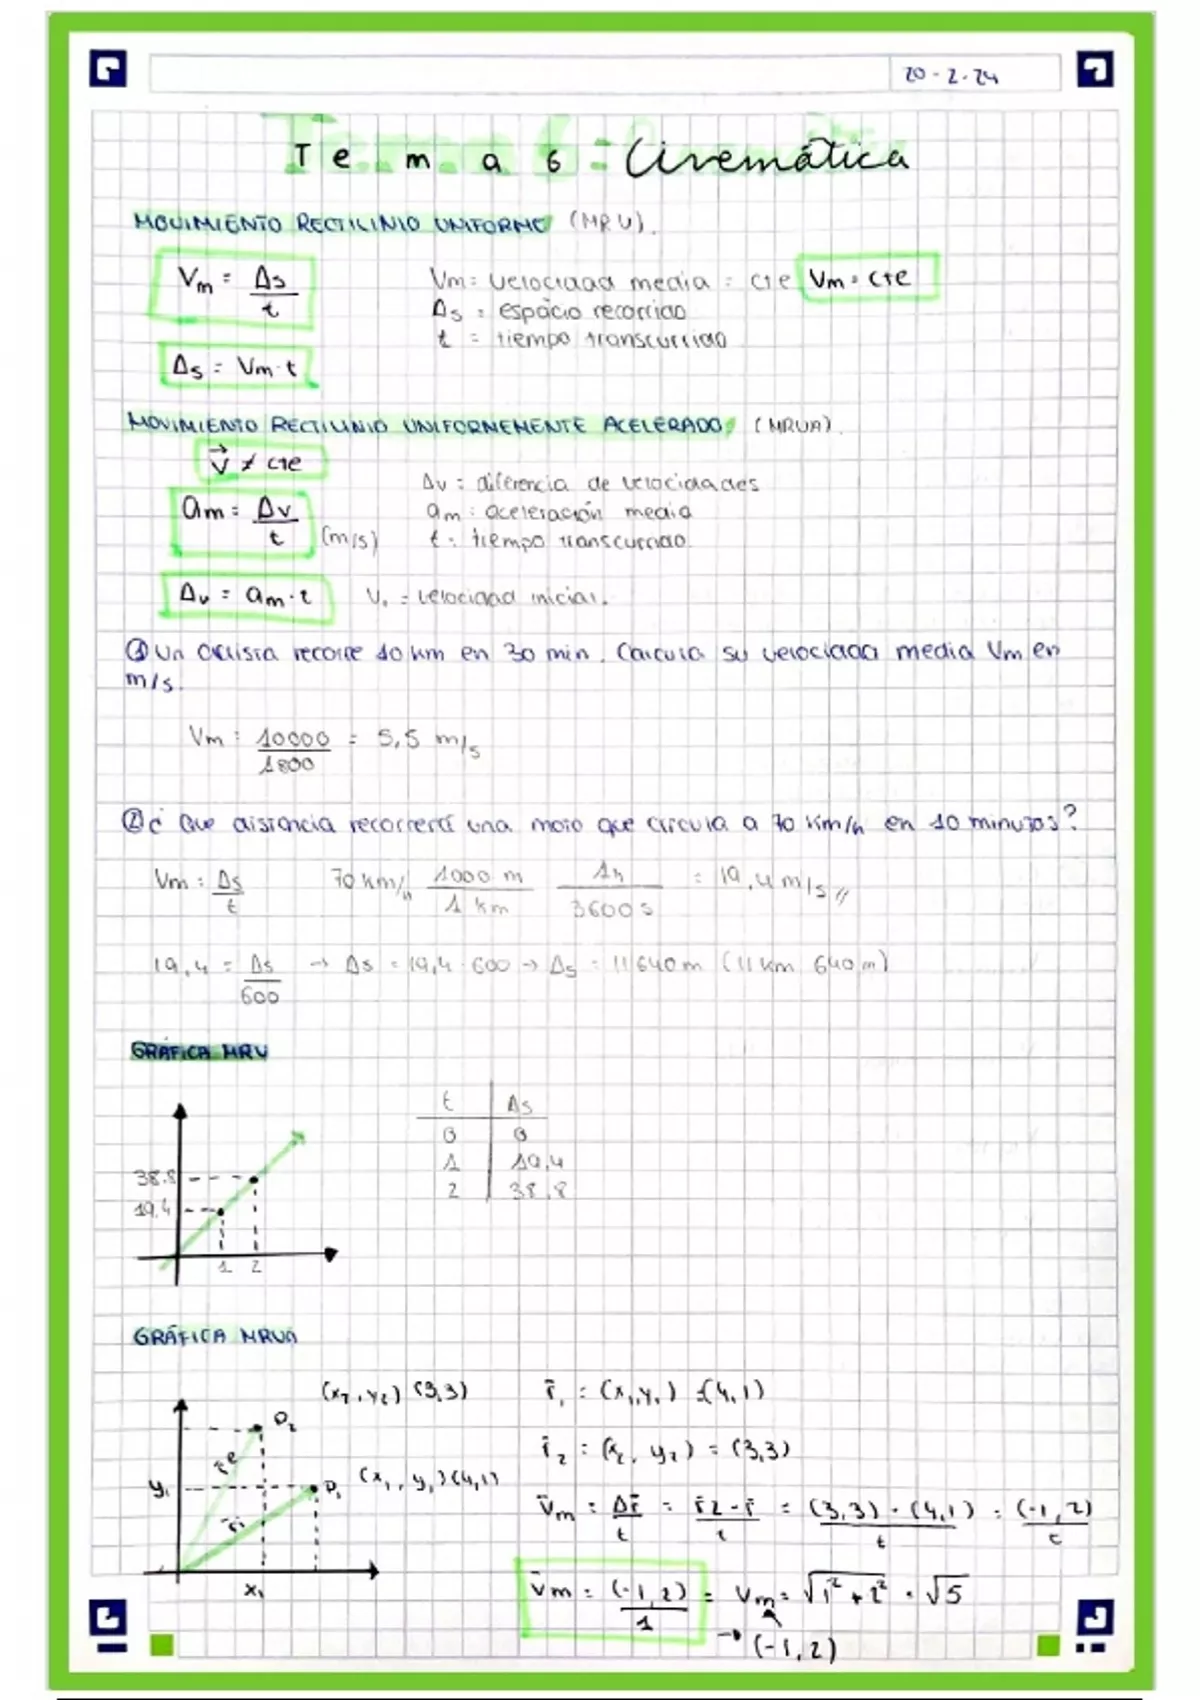 20-2-24
Tema 6: Cinemática
MOVIMIENTO RECTILINIO UNIFORME (MRU).
Vm = Δs / t
Vm = velocidad media = cte Vm = cte
Δs = espacio recorrido
t = tiempo transcurrido
Δs = Vm · t
MOVIMIENTO RECTILINIO UNIFORMEMENTE ACELERADO (MRUA).
v⃗ ≠ cte
Δv = diferencia de velocidades
am = Δv / t (m/s)
am = aceleración media
t = tiempo transcurrido
Δv = am · t
V₁ = velocidad inicial.
① Un ciclista recorre 10 km en 30 min. Calcula su velocidad media Vm en
m/s.
Vm = 10000 / 1800 = 5,5 m/s
② ¿ Que distancia recorrerá una moto que circula a 70 km/h en 10 minutos?
Vm = Δs / t 70 km/h 1000 m / 1 km 1h / 3600 s = 19,4 m/s //
19,4 = Δs / 600 → Δs = 19,4 · 600 → Δs = 11640 m (11 km 640 m)
GRÁFICA MRU
t Δs
0 0
1 19,4
2 38,8
38.8
19,4
1 2
GRÁFICA MRUA
(x₂, y₂) (3,3)
r⃗₁ = (x₁, y₁) = (4,1)
P₂
r⃗₂ = (x₂, y₂) = (3,3)
y₁
P₁ (x₁, y₁) (4,1)
r⃗₁
x₁
v⃗m = Δr⃗ / t = r⃗2 - r⃗ / t = (3,3) - (4,1) / t = (-1,2) / t
v⃗m = (-1,2) / 1 = Vm = √1² + 2² = √5
→ (-1,2)